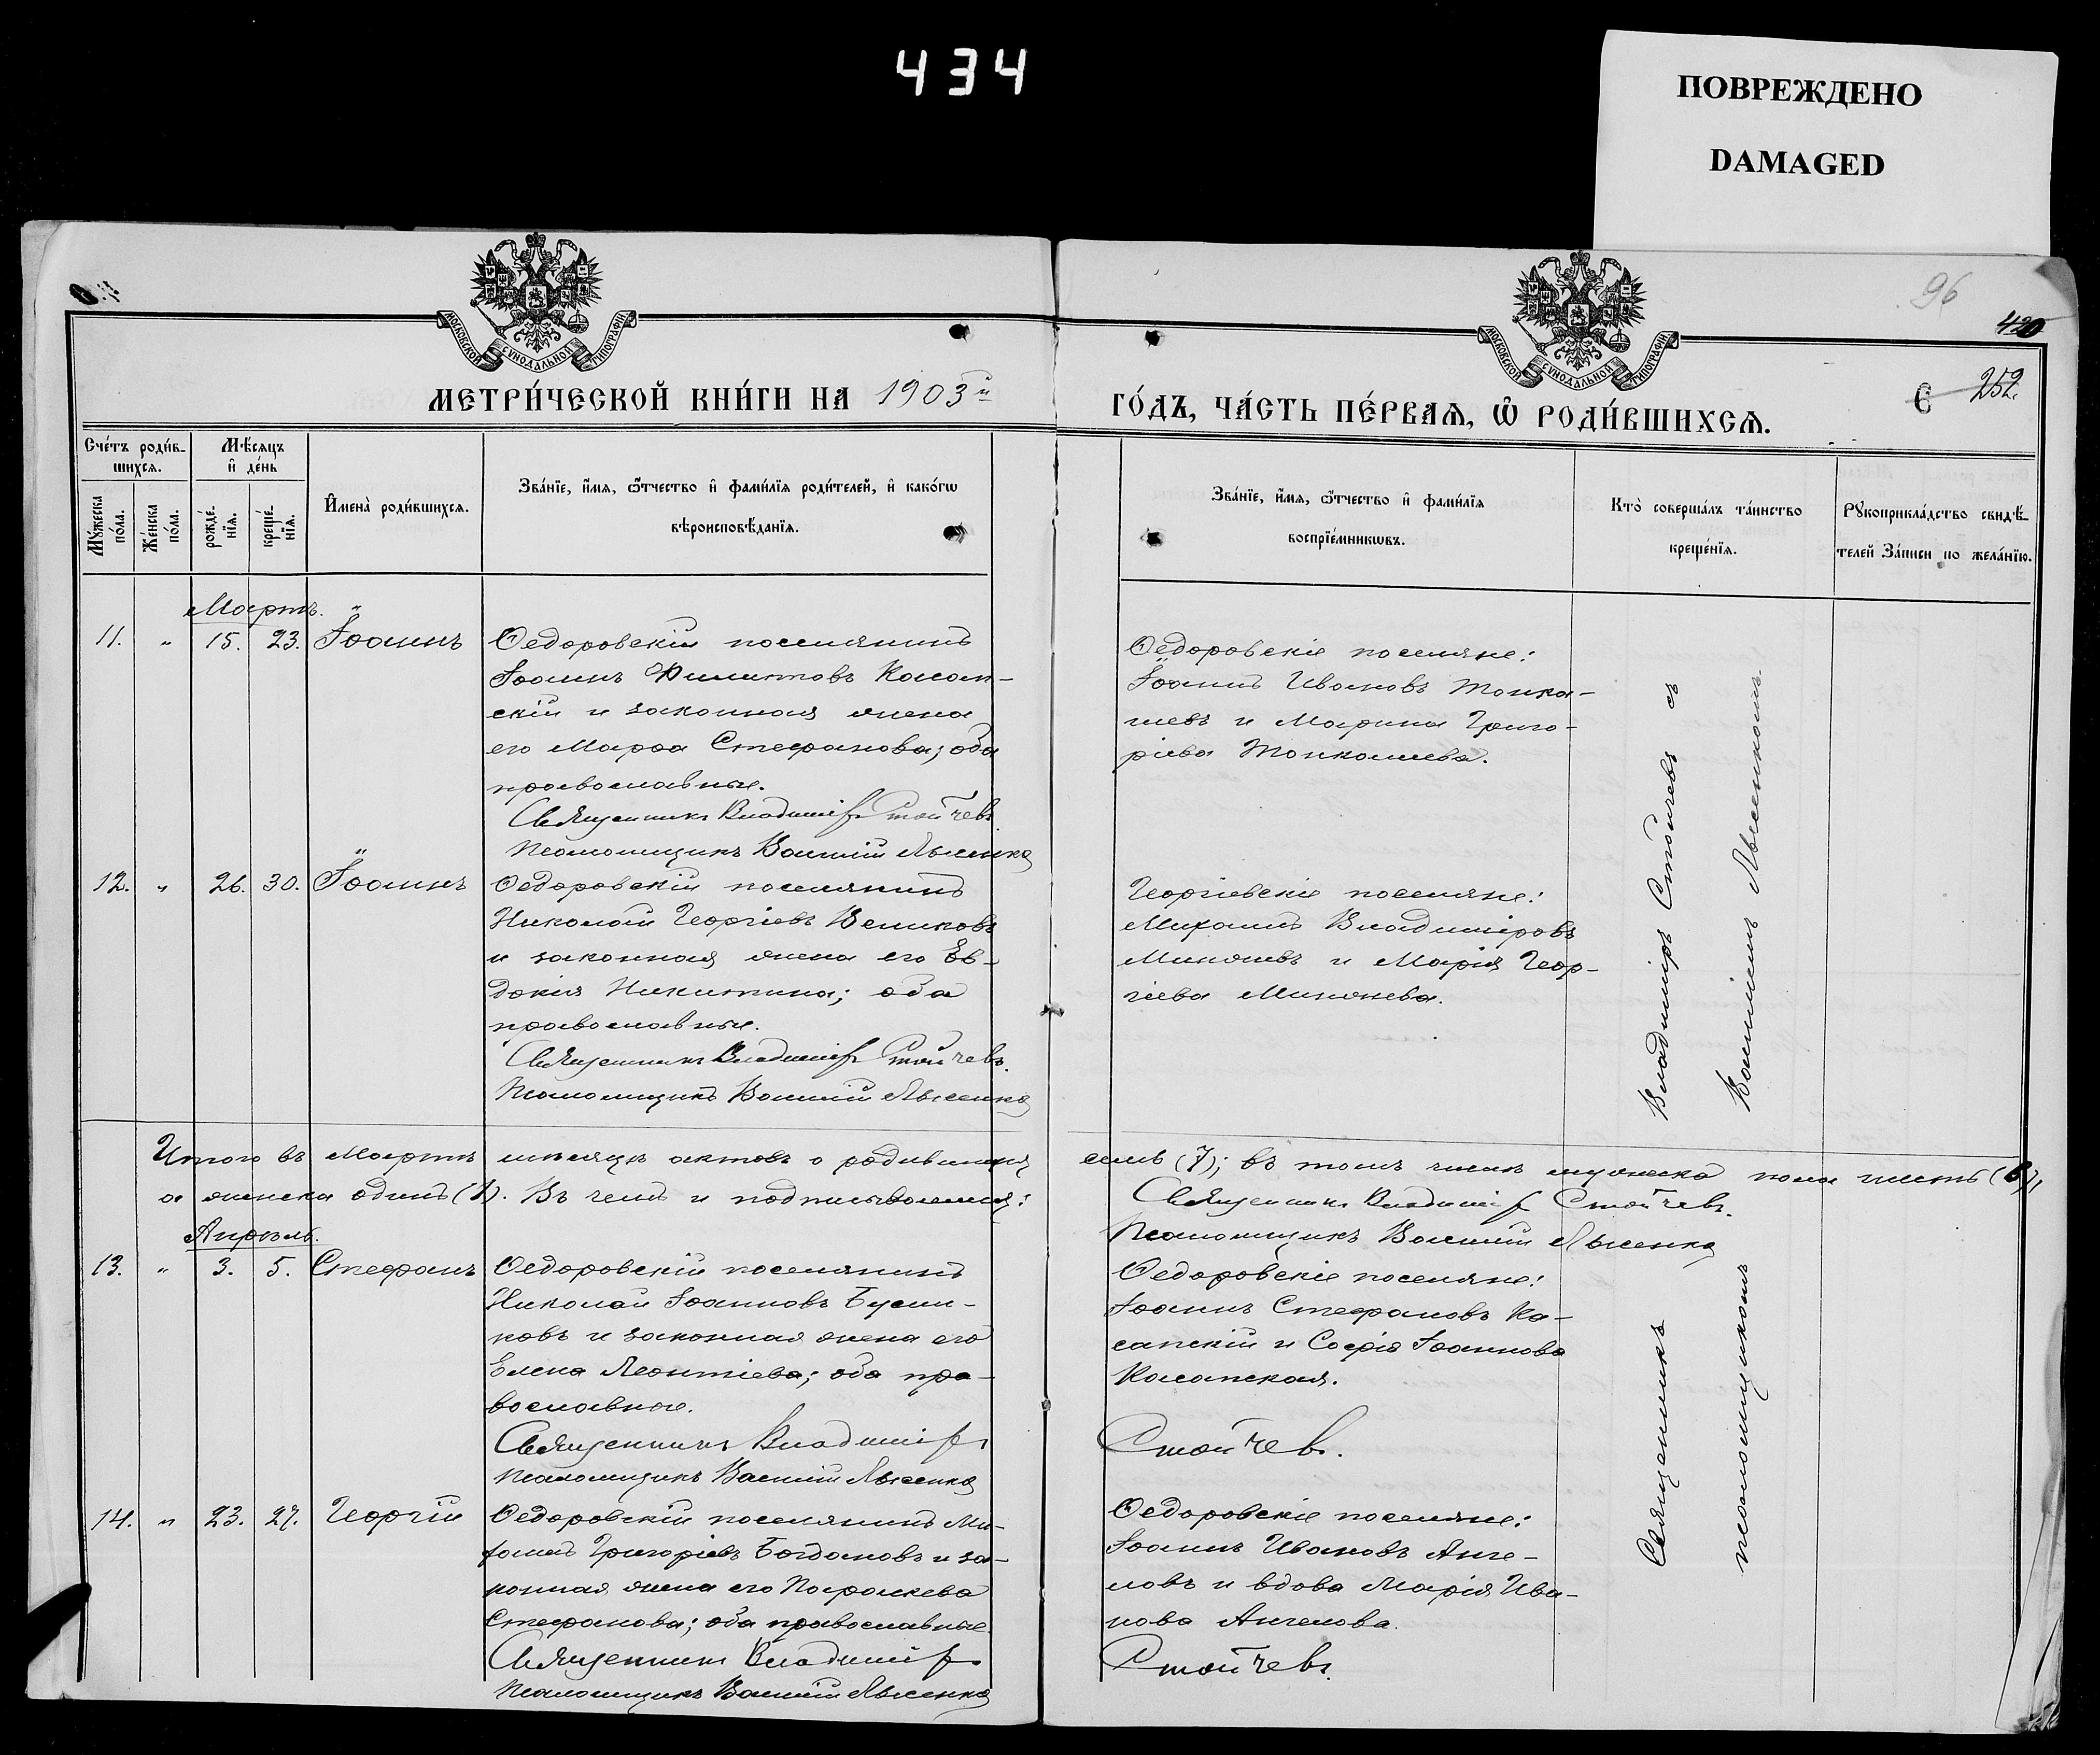 434
ПОВРЕЖДЕНО
DAMAGED
96
420
МОСКОВСКОЙ СѴНОДАЛЬНОЙ ТИПОГРАФІИ
МОСКОВСКОЙ СѴНОДАЛЬНОЙ ТИПОГРАФІИ
МЕТРИ́ЧЕСКОЙ КНИ́ГИ НА 1903й
ГО́ДЪ, ЧА́СТЬ ПЕ́РВАѦ, Ѽ РОДИ́ВШИХСѦ.
252.
Сче́тъ роди́в-
шихсѧ.
Мѣ́сѧцъ
и҆ де́нь
Мꙋ́жеска
по́ла.
Же́нска
по́ла.
рожде́-
нїѧ.
креще́-
нїѧ.
И҆мена̀ роди́вшихсѧ.
Зва́нїе, и҆́мѧ, ѻ҆́тчество и҆ фами́лїѧ роди́телей, и҆ како́гѡ
вѣроисповѣ́данїѧ.
Зва́нїе, и҆́мѧ, ѻ҆́тчество и҆ фами́лїѧ
воспрїе́мникѡвъ.
Кто̀ соверша́лъ та́инство
креще́нїѧ.
Рꙋкоприкла́дство свидѣ́-
телей За́писи по жела́нїю.
Мартъ.
11. „ 15. 23. Іоаннъ
Ѳедоровскій поселянинъ
Іоаннъ Филиповъ Касап-
скій и законная жена
его Марѳа Стефанова; оба
православные.
Священникъ Владиміръ Стойчевъ
Псаломщикъ Василій Лысенко
Ѳедоровскіе поселяне:
Іоаннъ Ивановъ Топка-
левъ и Марина Григо-
ріева Топкалева.
12. „ 26. 30. Іоаннъ
Ѳедоровскій поселянинъ
Николай Георгіевъ Великовъ
и законная жена его Ев-
докія Никитина; оба
православные.
Священникъ Владиміръ Стойчевъ.
Псаломщикъ Василій Лысенко
Георгіевскіе поселяне:
Михаилъ Владиміровъ
Минжевъ и Марія Геор-
гіева Минжева.
Итого въ Мартѣ мѣсяцѣ актовъ о родившихся семь (7); въ томъ числѣ мужеска пола шесть (6),
а женска одинъ (1). Въ чемъ и подписываемся:
Священникъ Владиміръ Стойчевъ.
Псаломщикъ Василій Лысенко
Апрѣль.
13. „ 3. 5. Стефанъ
Ѳедоровскій поселянинъ
Николай Іоанновъ Бусли-
ковъ и законная жена его
Елена Леонтіева; оба пра-
вославные.
Священникъ Владиміръ Стойчевъ.
Псаломщикъ Василій Лысенко
Ѳедоровскіе поселяне:
Іоаннъ Стефановъ Ка-
сапскій и Софія Іоаннова
Касапская.
14. „ 23. 27. Георгій
Ѳедоровскій поселянинъ Ми-
хаилъ Григоріевъ Богдановъ и за-
конная жена его Параскева
Стефанова; оба православные.
Священникъ Владиміръ Стойчевъ.
Псаломщикъ Василій Лысенко
Ѳедоровскіе поселяне:
Іоаннъ Ивановъ Анге-
ловъ и вдова Марія Ива-
нова Ангелова.
Священникъ Владиміръ Стойчевъ съ
псаломщикомъ Василіемъ Лысенкомъ